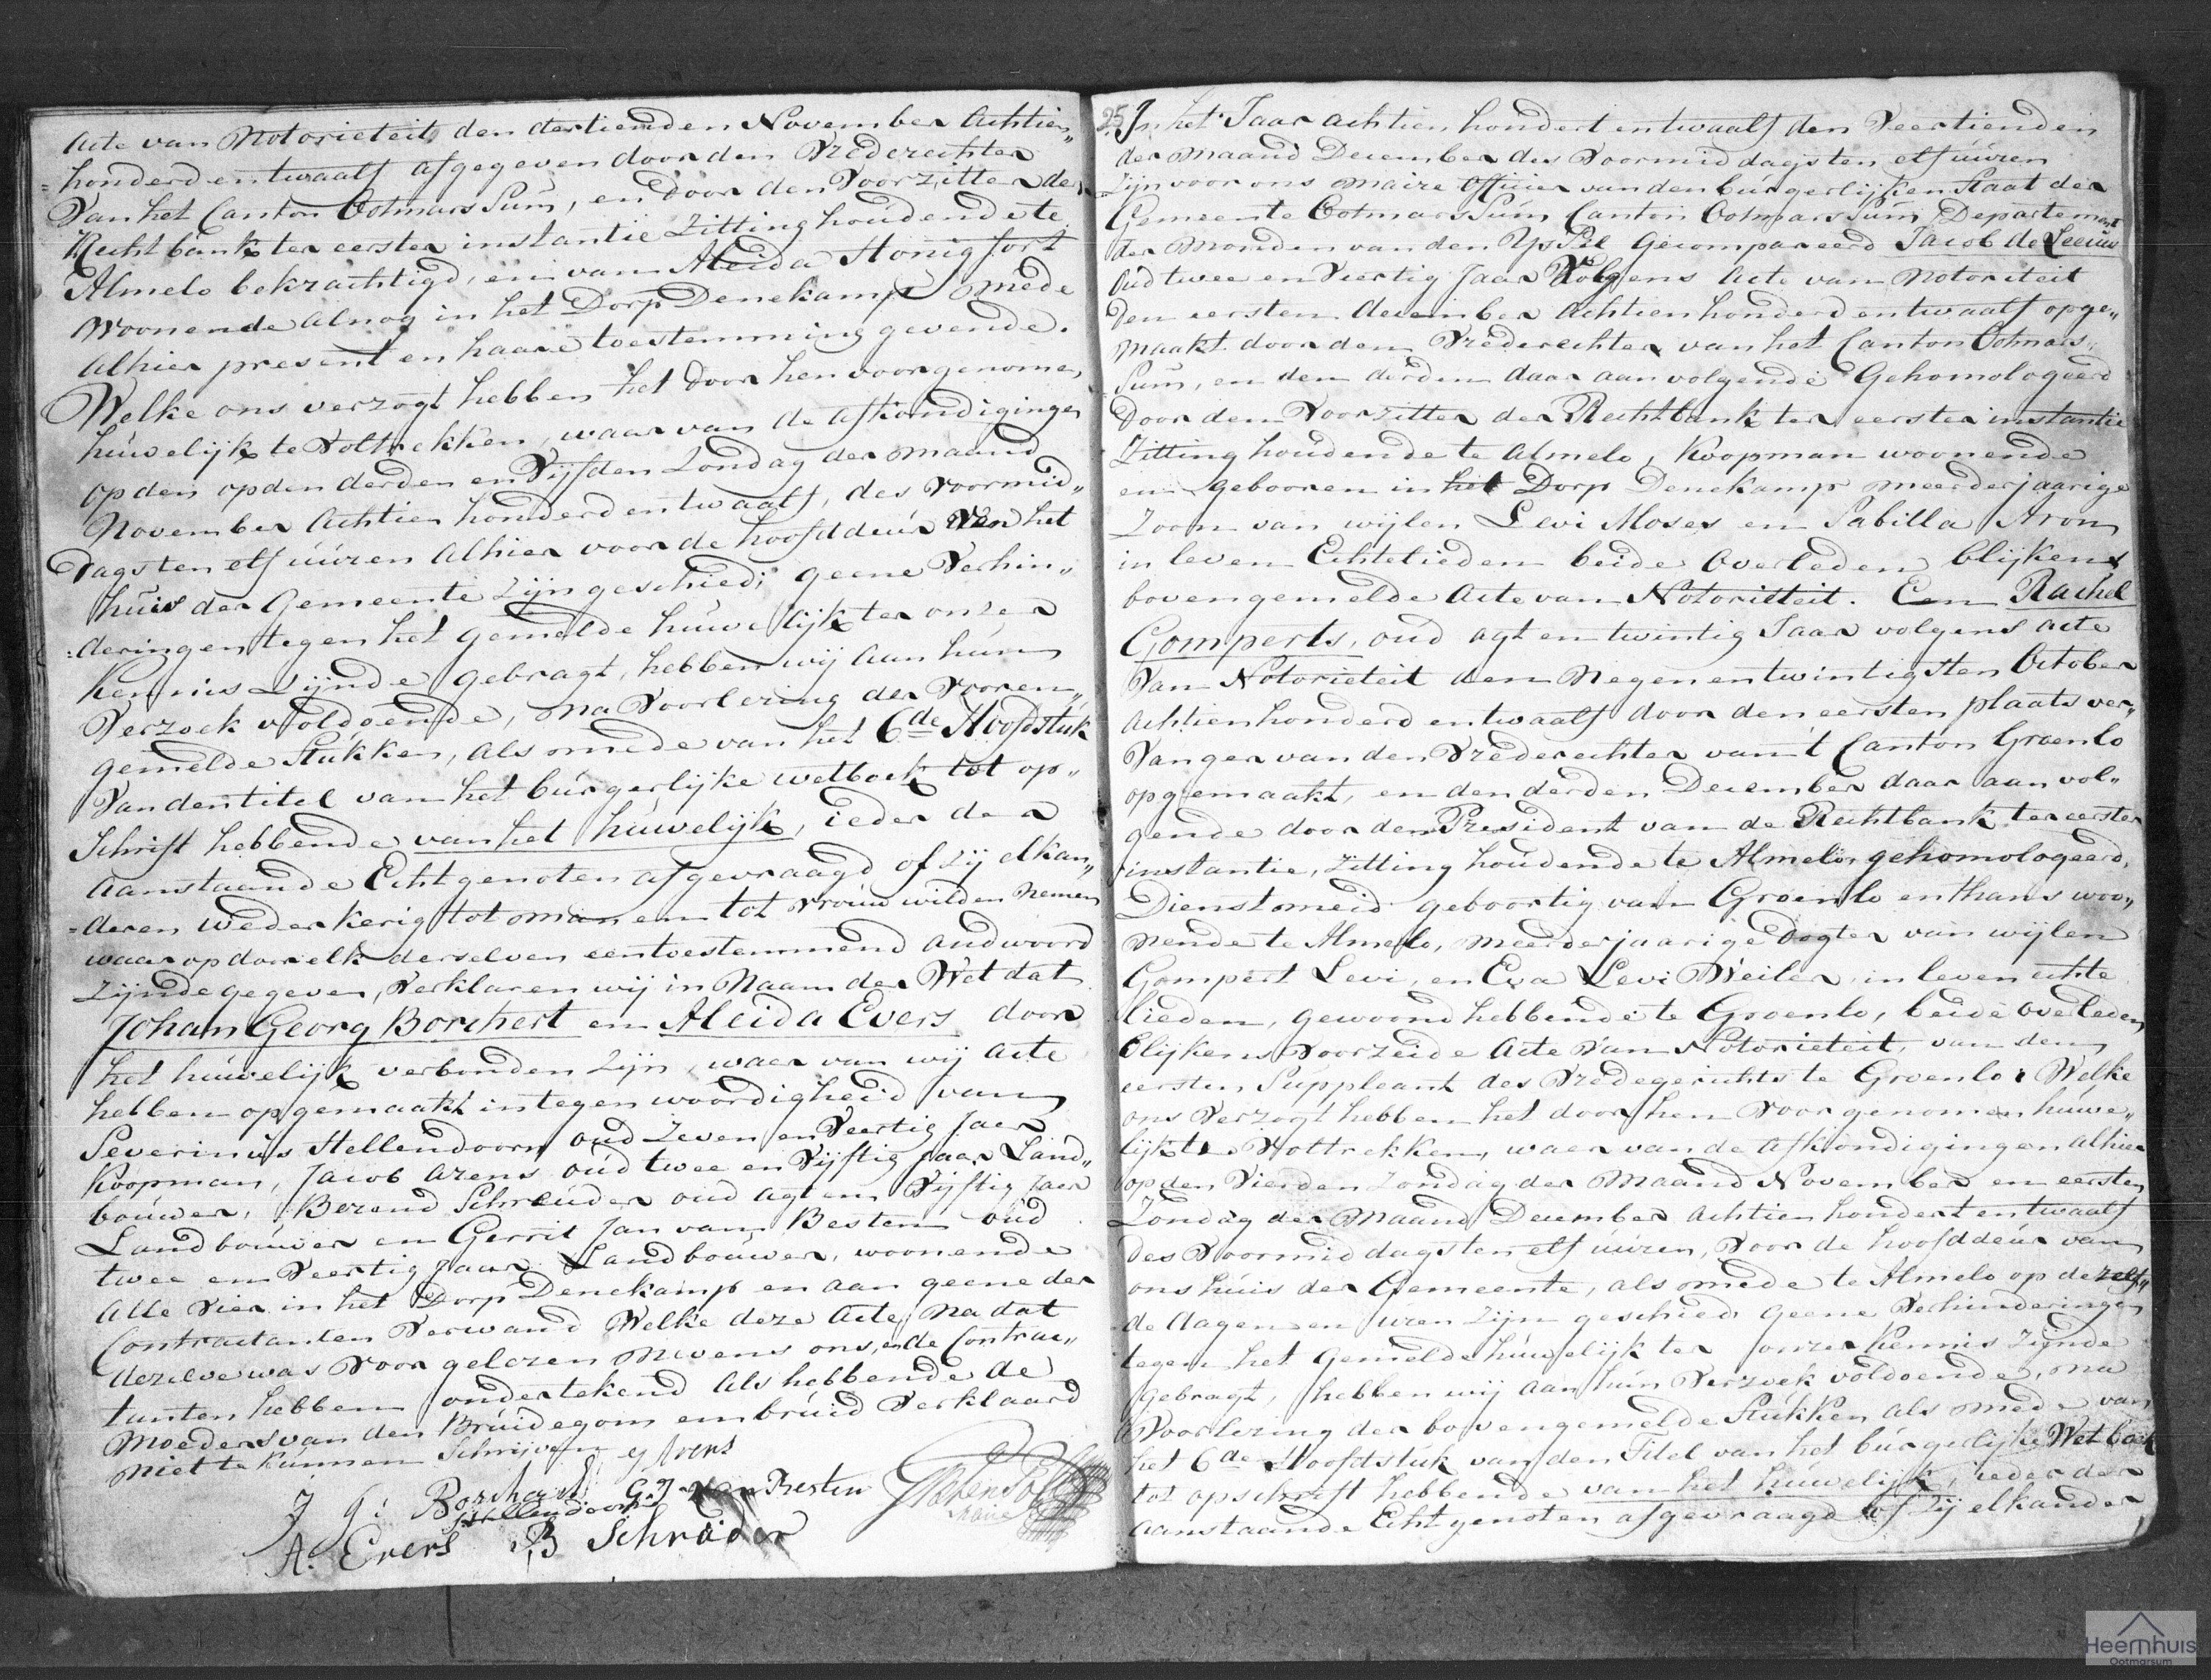 Acte van Notorieteit, den dertienden November Achtien„
honderd en twaalf afgegeven door den Vrederechter
van het Canton Ootmarssum, en door den Voorzitter der
Rechtbank ter eerster instantie Zitting houdende te
Almelo bekrachtigd, en van Aleida Honigfort
woonende alnog in het Dorp Denekamp mede
alhier present en haare toestemming gevende.
Welke ons verzogt hebben het door hen voorgenomen
huwelijk te voltrekken, waar van de afkondigingen
op den op den derden en Vijfden Zondag der maand
November Achtien honderd en twaalf, des voormid„
dags ten elf uuren alhier voor de hoofddeur van het
huis der Gemeente zijn geschied; geene Verhin„
deringen tegen het gemelde huwelijk ter onzer
kennis zijnde gebragt, hebben wij aan hun
Verzoek voldoende, na Voorlezing der Vooren„
gemelde Stukken, als mede van het 6de Hoofdstuk
van den titel van het burgerlijke wetboek tot op„
Schrift hebbende van het huwelijk, ieder der
aanstaande Echtgenoten afgevraagd of zij elkan„
deren wederkerig tot man en tot vrouw wilden nemen
waar op door elk derselven een toestemmend andwoord
zijnde gegeven, Verklaren wij in Naam der Wet dat
Johan Georg Borchert en Aleida Evers door
het huwelijk verbonden zijn, waer van wij Acte
hebben opgemaakt in tegenwoordigheid van
Severinus Stellendoorn oud Zeven en Veertig Jaer
Koopman, Jacob Arens oud twee en Vijftig jaar Land„
bouwer, Berend Schreuder oud agt en Vijftig Jaer
Landbouwer en Gerrit Jan van Besten oud
twee en Veertig Jaar Landbouwer, woonende
alle Vier in het Dorp Denekamp en aan geene der
Contractanten Verwand Welke deze Acte, na dat
dezelve was Voorgelezen nevens ons, en de Contrac„
tanten hebben ondertekend als hebbende de
Moeders van den Bruidegom en bruid Verklaard
niet te kunnen Schrijven
J G: Borchart G J van Besten
Stellendoorn
maire
A. Evers B Schröder
25 In het Jaar achtien hondert en twaalf den Veertienden
der maand December des Voormiddags ten elf uuren
Zijn voor ons maire Officier van den burgerlijken Staat der
Gemeente Ootmarssum Canton Ootmarssum Departement
der monden van den Yssel Gecompareerd Jacob de Leeuw
Oud twee en Veertig Jaar Volgens Acte van Notoriteit
den eersten december Achtien honderd en twaalf opge„
maakt door den Vrederechter van het Canton Ootmars„
sum, en den derden daar aan volgende Gehomologeerd
door den Voorzitter der Rechtbank ter eerster instantie
Zitting houdende te Almelo, Koopman woonende
en gebooren in het Dorp Denekamp meerderjaarige
Zoon van wijlen Levi Moses en Sabilla Aron
in leven Echtelieden beide Overleden blijkens
bovengemelde Acte van Notoriëteit. Een Rachel
Gomperts, oud agt en twintig Jaar volgens acte
van Notorieteit den Negen en twintigsten October
achtien honderd en twaalf door den eersten plaatsver„
vanger van den Vrederechter van 't Canton Groenlo
opgemaakt, en den derden December daar aan vol„
gende door den President van de Rechtbank ter eerster
instantie, Zitting houdende te Almelo, gehomologeerd,
Dienstmeid geboortig van Groenlo en thans woo„
nende te Almelo, meerderjaarige Dogter van wijlen
Gompert Levi, en Eva Levi Weiler in leven echte
lieden, gewoond hebbende te Groenlo, beide overleden
blijkens Voorzeide Acte van Notorieteit, van den
eersten Suppleant des Vredegerichts te Groenlo: Welke
ons Verzogt hebben het door hen Voorgenomen huwe„
lijk te Voltrekken, waer van de Afkondigingen alhier
op den Vierden Zondag der Maand November en eersten
Zondag der Maand December Achtien hondert en twaalf
des Voormiddags ten elf uuren, Voor de hoofddeur van
ons huis der Gemeente, als mede te Almelo op dezelf„
de dagen en uren zijn geschied geene Verhinderingen
tegen het gemelde huwelijk ter onzer kennis zijnde
gebragt, hebben wij aan hun Verzoek voldoende, na
Voorlezing der bovengemelde Stukken als mede van
het 6de Hoofdstuk van den Titel van het burgerlijke Wetboek
tot opschrift hebbende van het huwelijk, ieder der
aanstaande Echtgenoten afgevraagd of zij elkander
Heemhuis
Ootmarsum